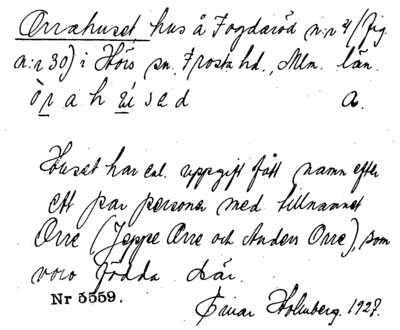 Orrahuset, hus å Fogdaröd n:r 4 (fig.
n:r 30) i Hörs sn. Frosta hd., Mlm. län.
òrahúsəd a.
Huset har enl. uppgift fått namn efter
ett par personer med tillnamnet
Orre (Jeppe Orre och Anders Orre), som
voro födda där.
Nr 5559. Einar Holmberg. 1927.